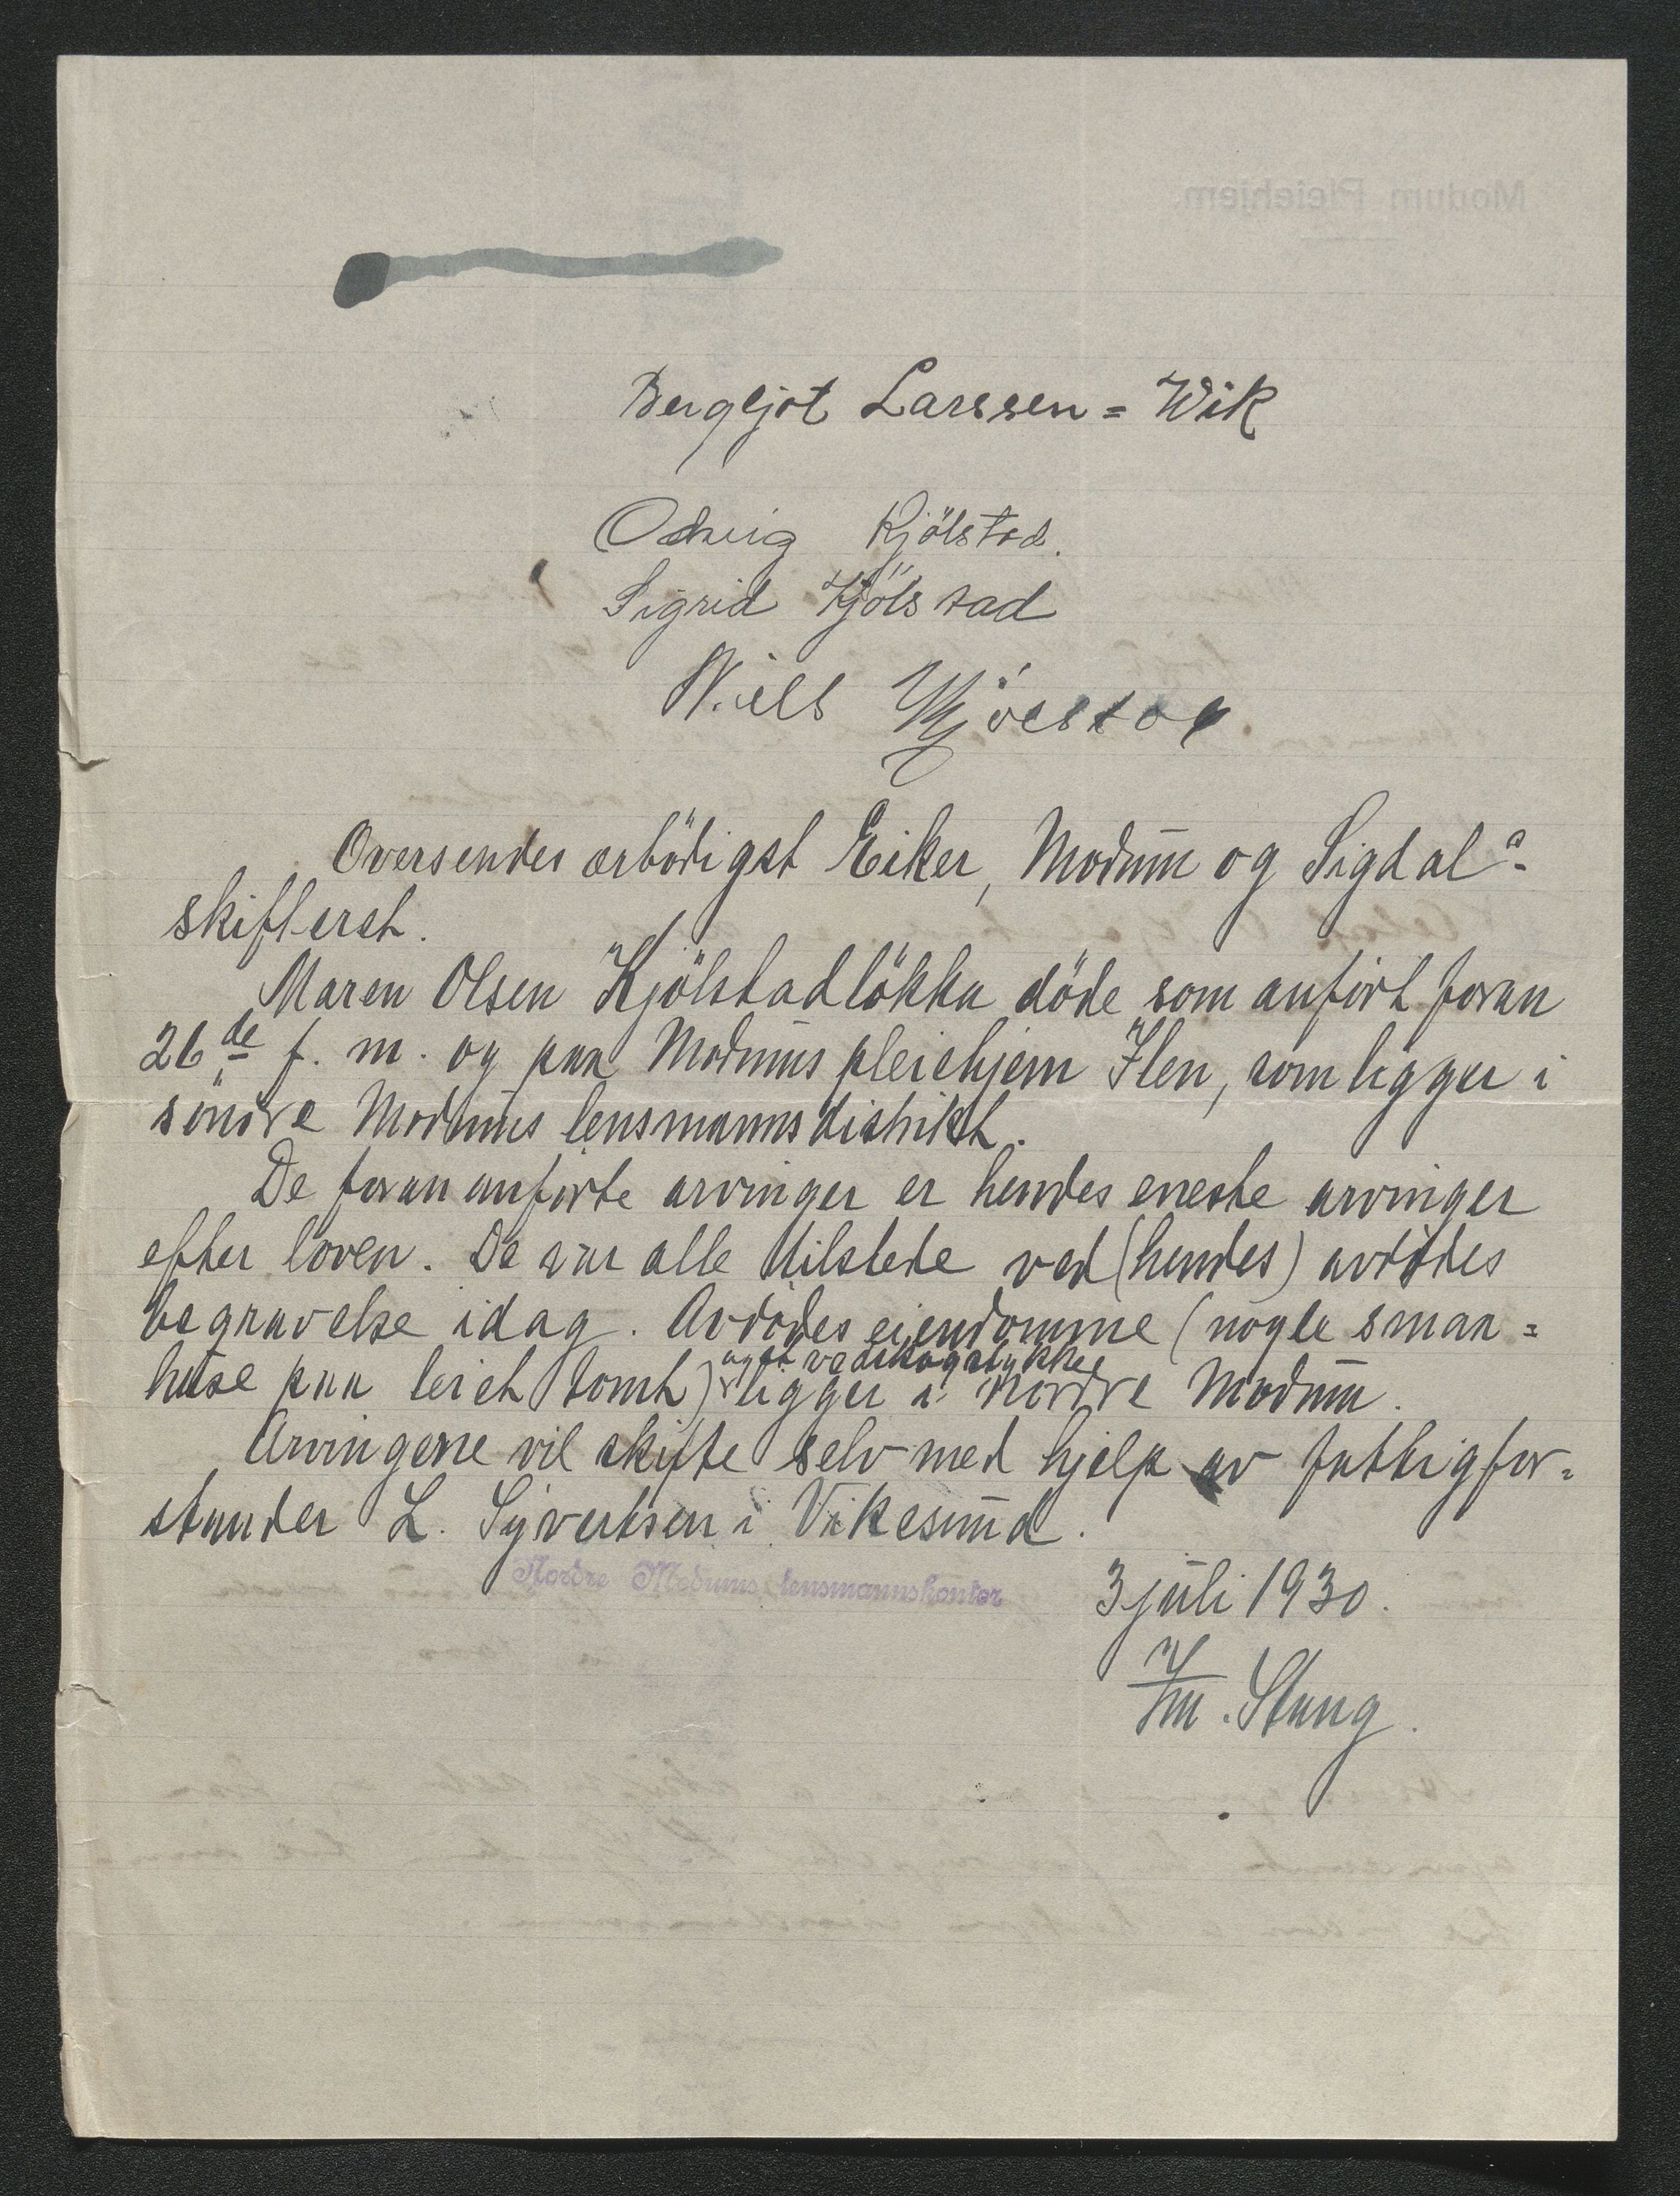 Modum Pleiehjem.
Bergljot Larssen = Wik
Odvig Kjölstad.
Sigrid Kjölstad
Niels Kjölstad
Oversendes ærbödigst Eiker, Modum og Sigdals
skifterett.
Maren Olsen Kjölstadlökka döde som anfört foran
26de f. m. og paa Modums pleiehjem Ilen, som ligger i
söndre Modums lensmannsdistrikt.
De foran anförte arvinger er hendes eneste arvinger
efter loven. De var alle tilstede ved (hendes) avdödes
begravelse idag. Avdödes eiendomme (nogle smaa =
og et vedskogstykke
huse paa leiet tomt) ligger i nordre Modum.
Arvingene vil skifte selv med hjelp av fattigfor=
stander L. Syvertsen i Vikesund.
Nordre Modums lensmannskontor
3 juli 1930.
M. Stang.